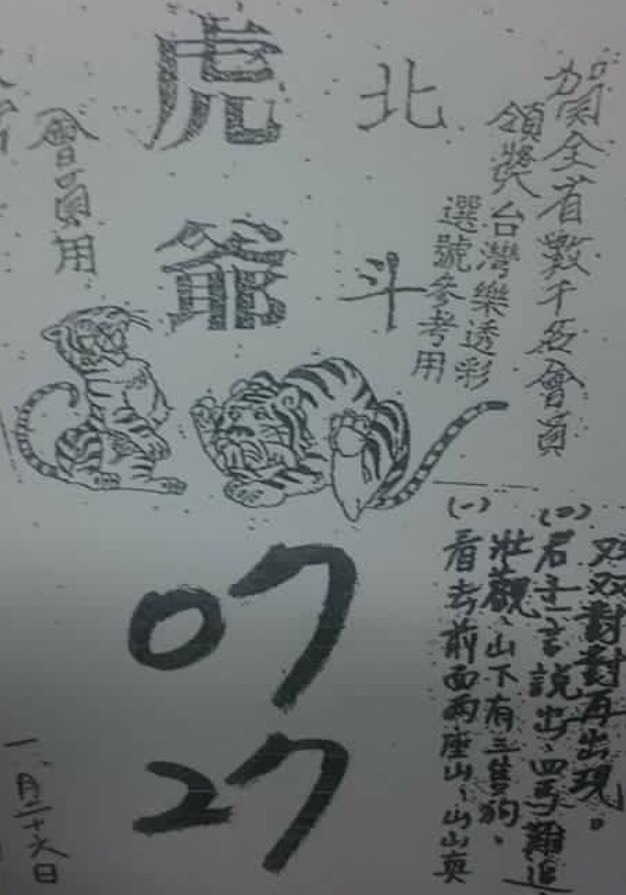 賀全省數千名會員
領獎
台灣樂透彩
選號參考用
北斗
虎爺
會員用
(一)看去前面兩座山、山山真
壯觀、山下有三隻狗、
(二)君子一言說出、四馬難追
双双對對再出現。
07
27
一月二十六日